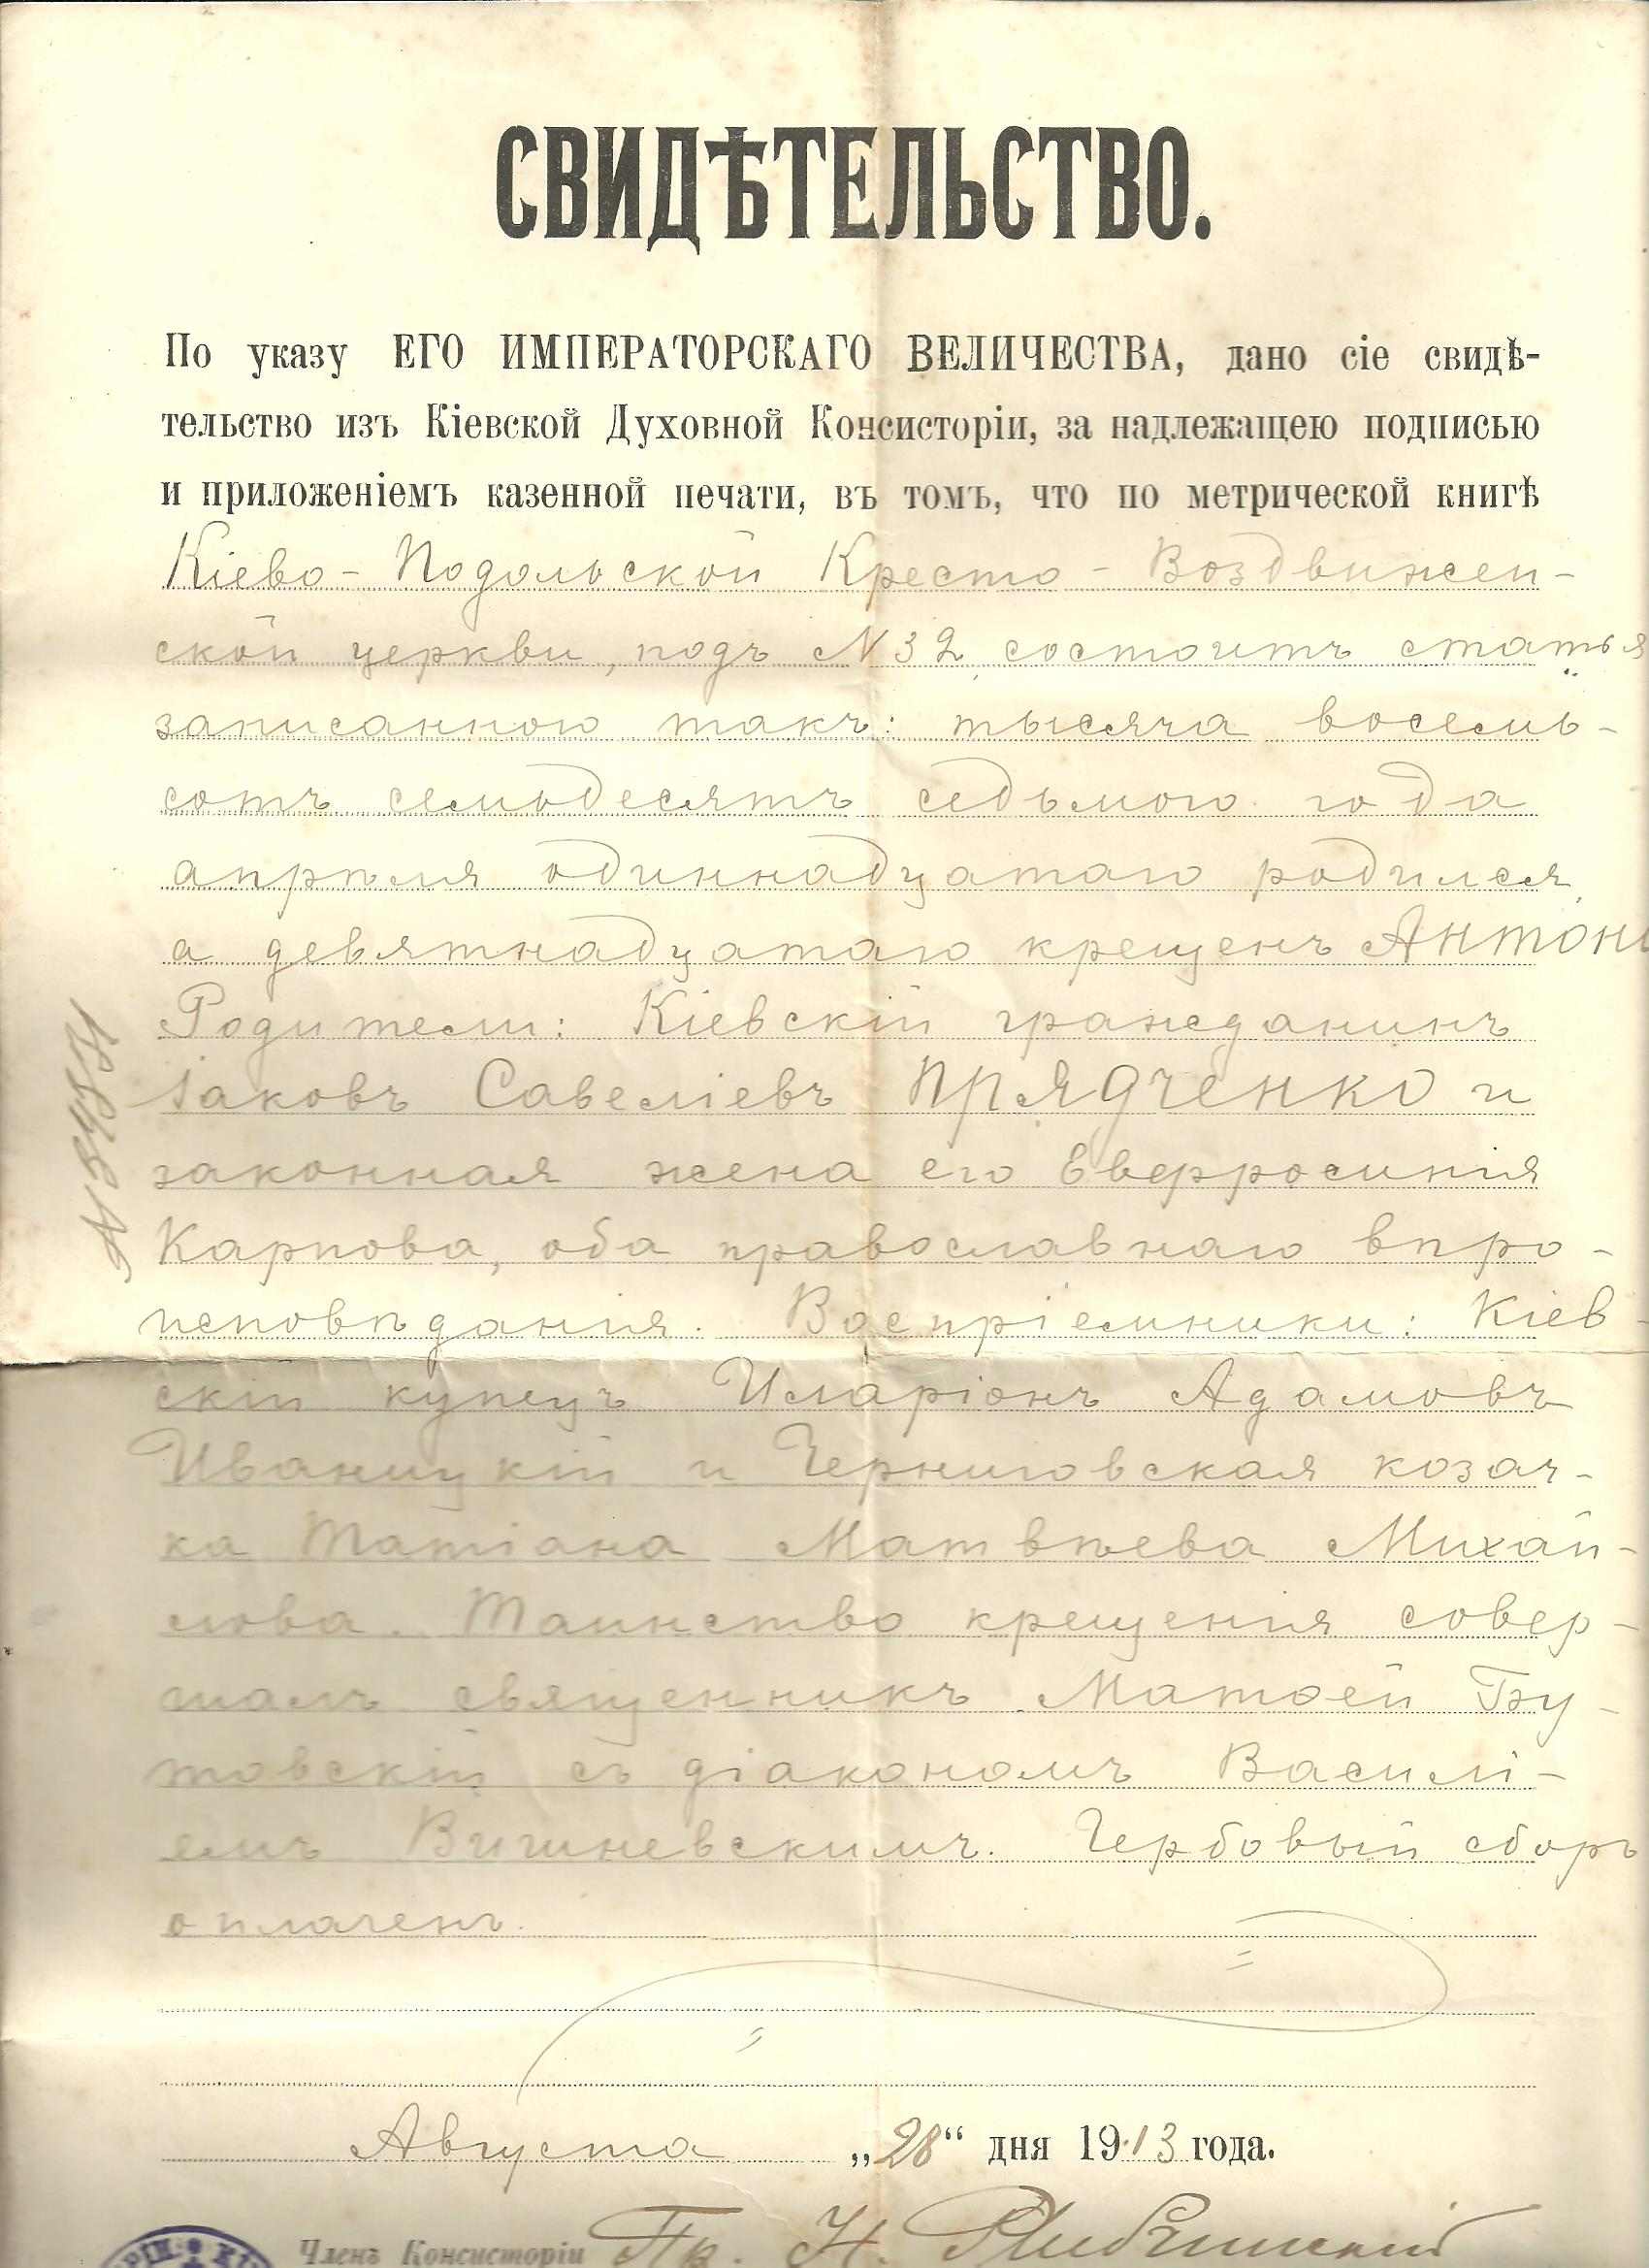 СВИДѢТЕЛЬСТВО.
По указу ЕГО ИМПЕРАТОРСКАГО ВЕЛИЧЕСТВА, дано сіе свидѣ-
тельство изъ Кіевской Духовной Консисторіи, за надлежащею подписью
и приложеніемъ казенной печати, въ томъ, что по метрической книгѣ
Кіево-Подольской Кресто-Воздвижен-
ской церкви, подъ № 32 состоитъ статья
записанною такъ: тысяча восемь-
сотъ семьдесятъ седьмого года
апрѣля одиннадцатаго родился,
а девятнадцатаго крещенъ Антоні
Родители: Кіевскій гражданинъ
Іаковъ Савеліевъ Прядченко и
законная жена его Евфросинія
Карпова, оба православнаго вѣро-
исповѣданія. Воспріемники: Кіев-
скій купецъ Иларіонъ Адамовъ
Иваницкій и Черниговская козач-
ка Татіана Матвѣева Михай-
лова. Таинство крещенія совер-
шалъ священникъ Матѳей Бу-
товскій съ діакономъ Василі-
емъ Вишневскимъ. Гербовый сборъ
оплаченъ.
Августа „28“ дня 1913 года.
Членъ Консисторіи Пр. Н.